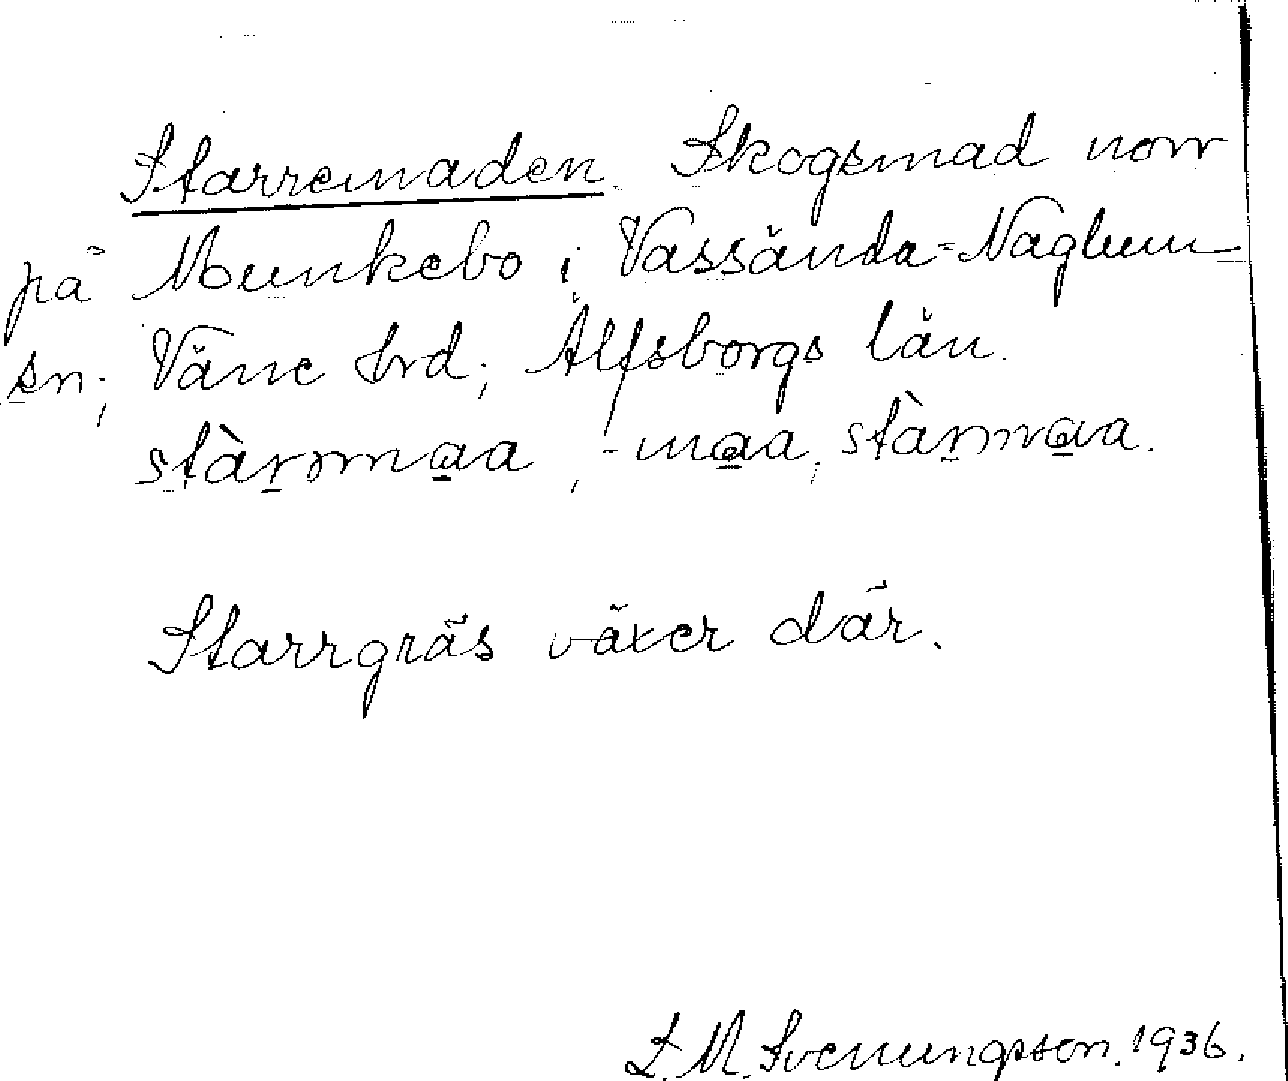 Starremaden. Skogsmad norr
på Munkebo i Vassända-Naglum
sn; Väne hrd; Älfsborgs län.
stàrmaa, -maa, stàrmaa.
Starrgräs växer där.
L. M. Svenungsson. 1936.